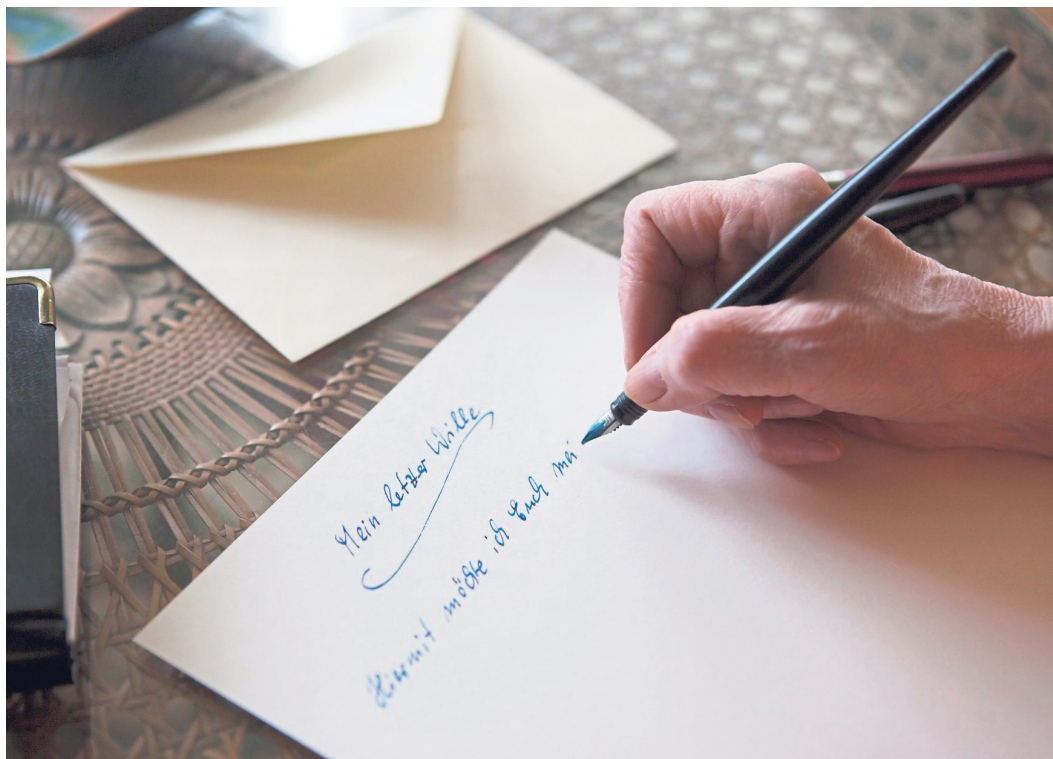 Mein letzter Wille
Hiermit möchte ich Euch mei